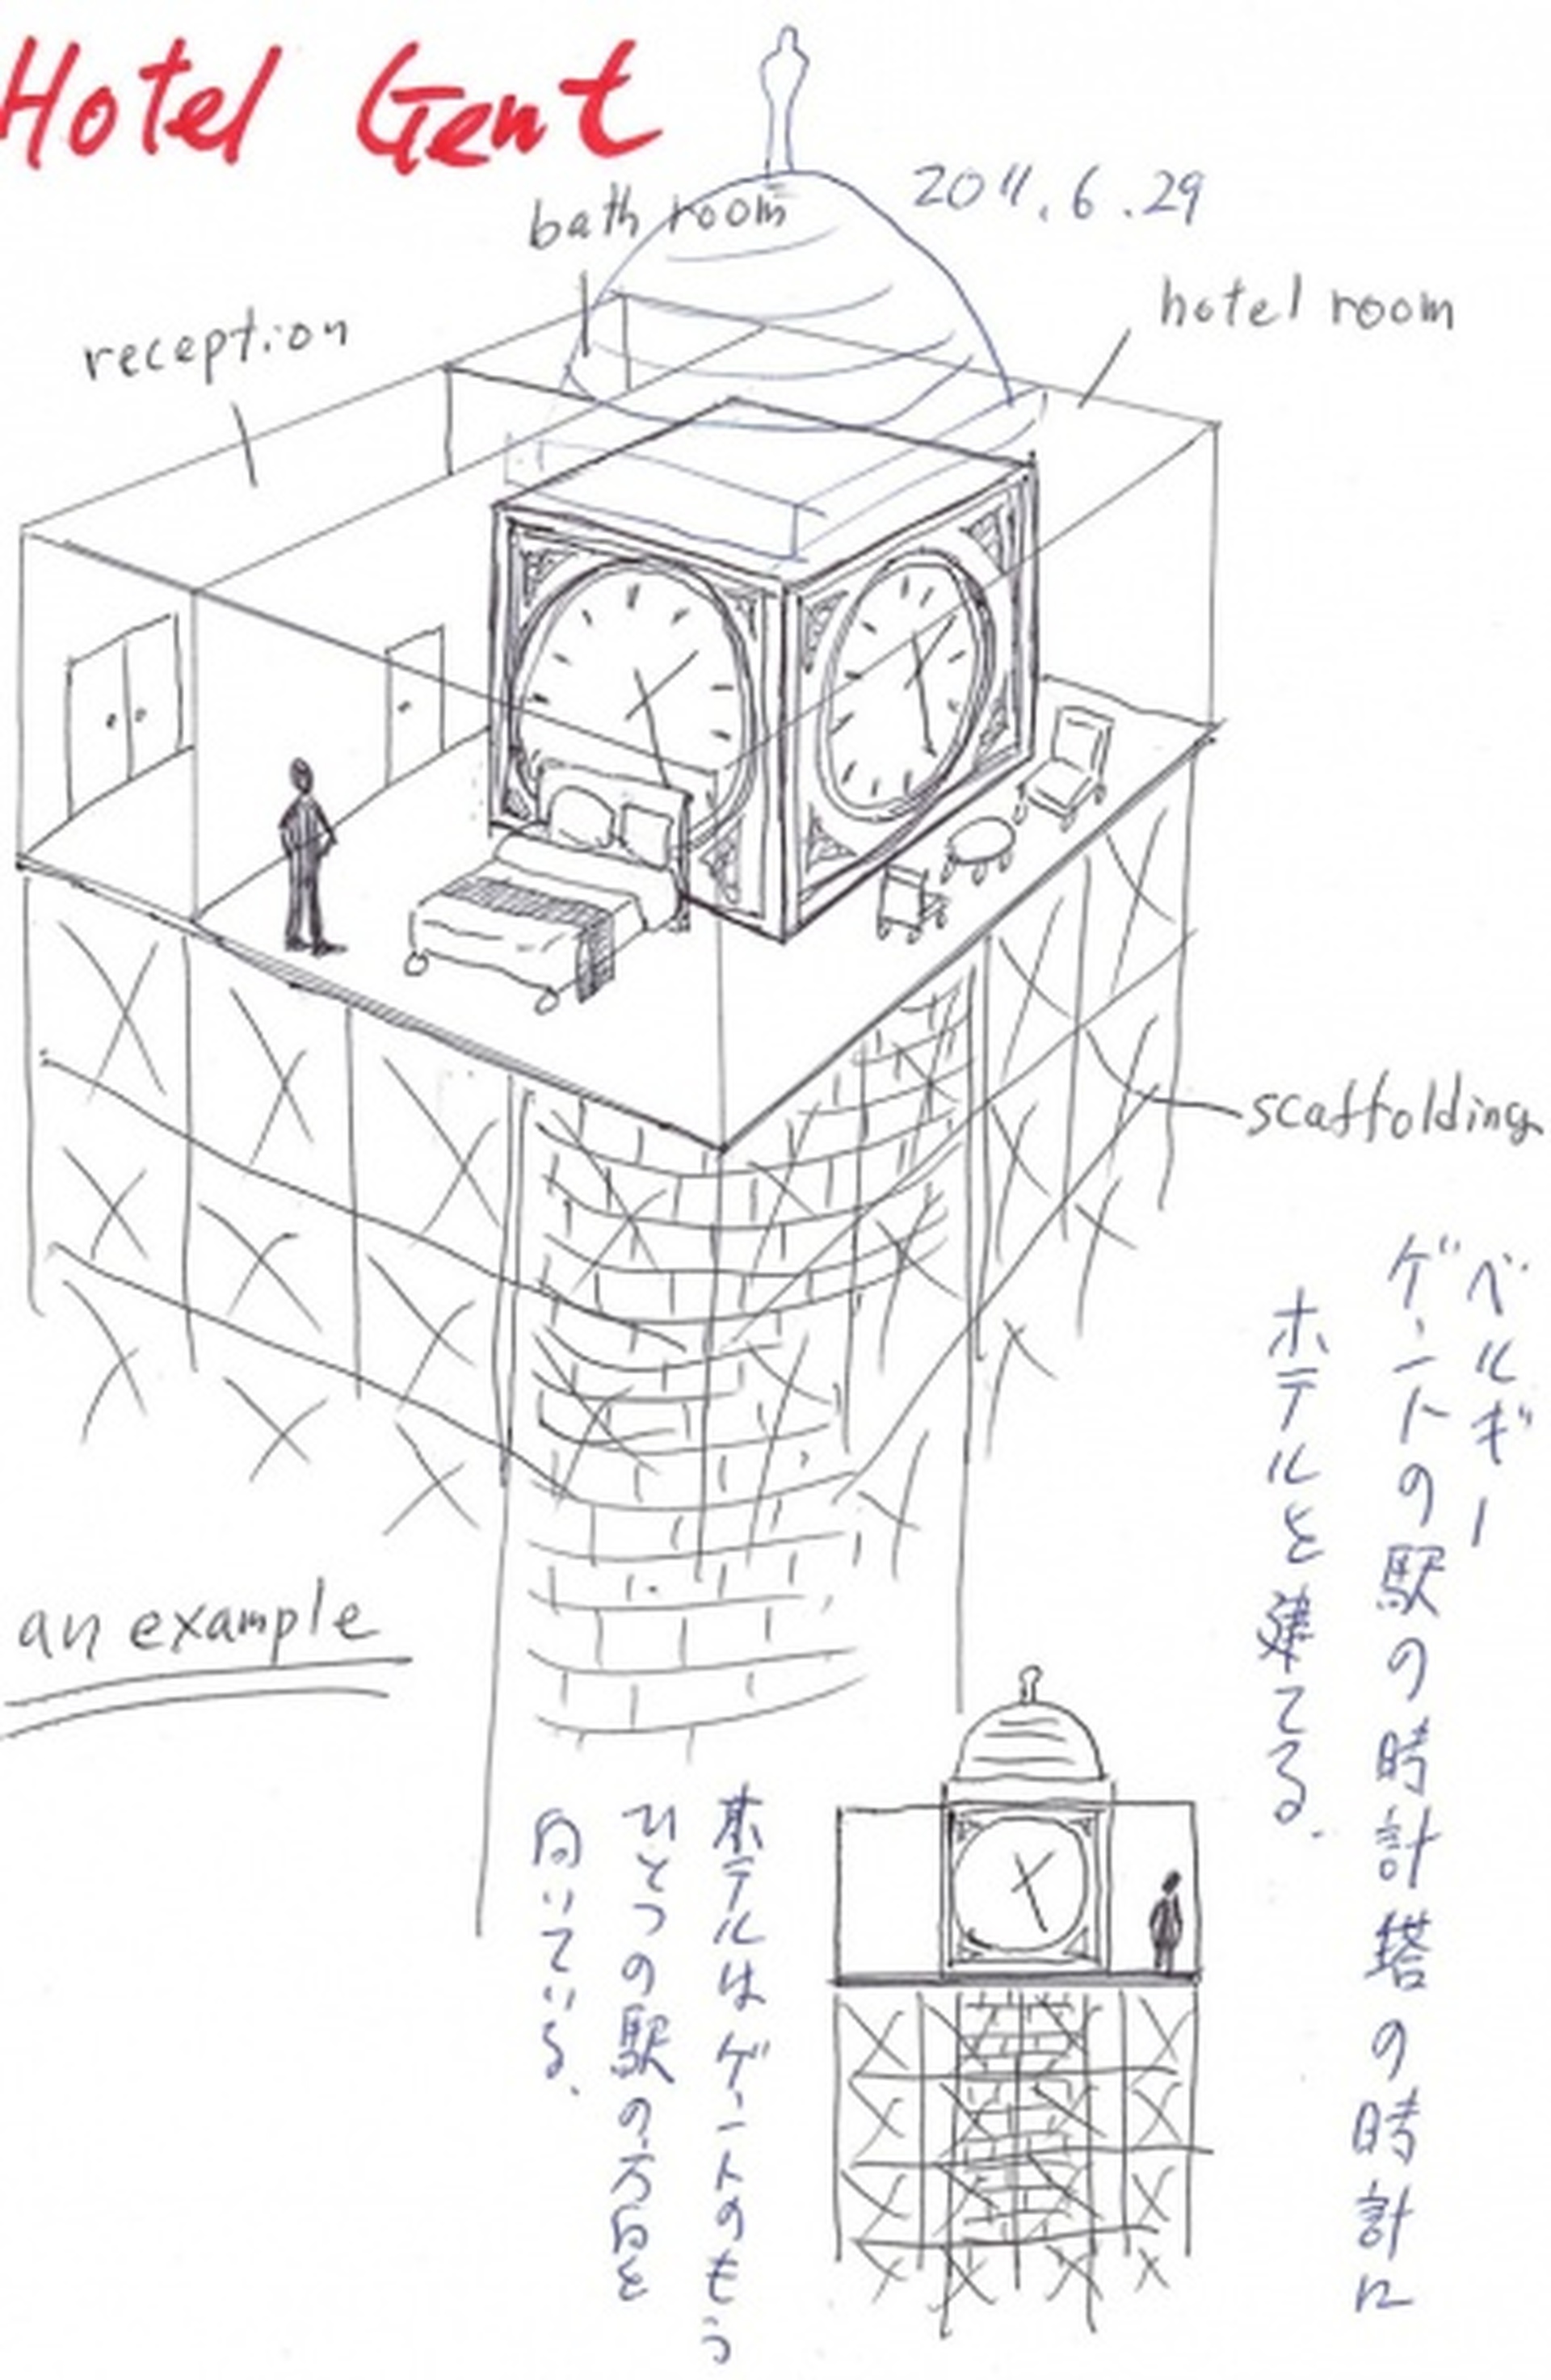 Hotel Gent
2011.6.29
bath room
hotel room
reception
scaffolding
an example
ベルギー
ゲントの駅の時計塔の時計に
ホテルを建てる.
ホテルはゲントのもう
ひとつの駅の方向を
向いている.